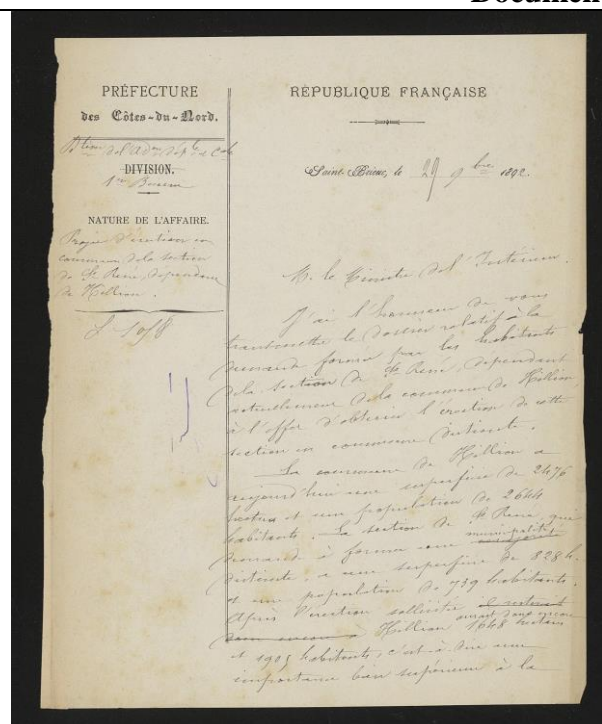 Documen
PRÉFECTURE
des Côtes-du-Nord.
DIVISION.
1er Bureau
NATURE DE L'AFFAIRE.
Projet d'érection en
commune de la section
de St René, dépendant
de Hillion.
RÉPUBLIQUE FRANÇAISE
Saint-Brieuc, le 29 9bre 1892.
M. le Ministre de l'Intérieur.
J'ai l'honneur de vous
transmettre le dossier relatif à la
demande formée par les habitants
de la section de St René, dépendant
actuellement de la commune de Hillion
à l'effet d'obtenir l'érection de cette
section en commune distincte.
La commune de Hillion a
aujourd'hui une superficie de 2476
hectares et une population de 2644
habitants. La section de St René, qui
demande à former une municipalité
distincte, a une superficie de 828 h.
et une population de 739 habitants.
Après l'érection sollicitée il resterait
à Hillion aurait donc encore 1648 hectares
et 1905 habitants, c'est-à-dire une
importance bien supérieure à la